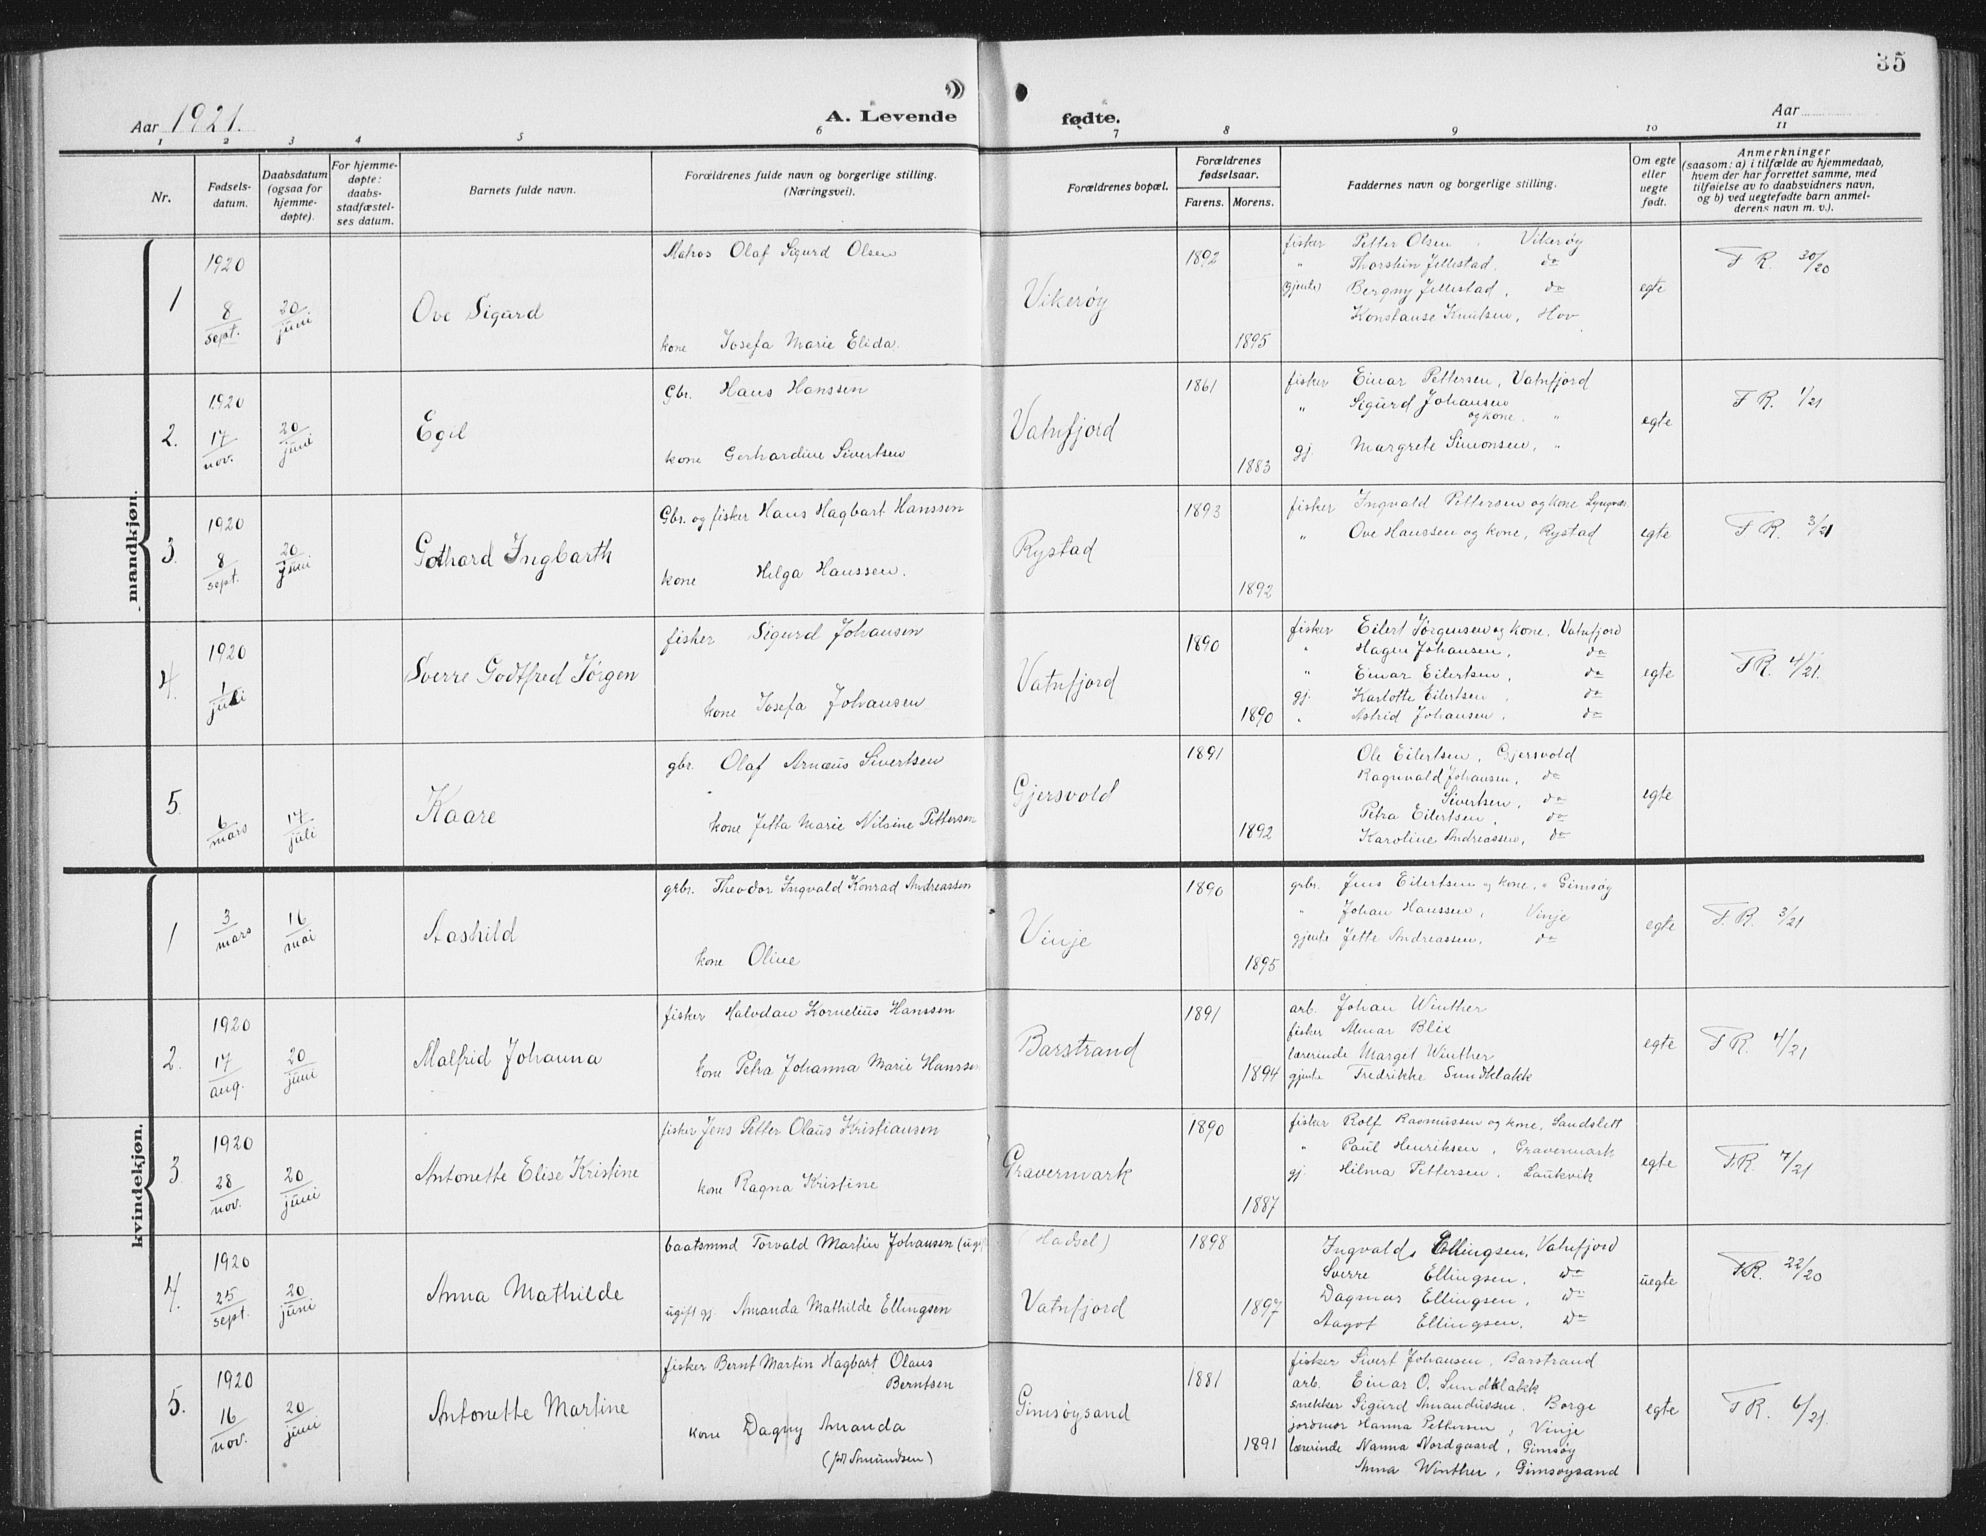 35
Aar 1921.
A. Levende fødte.
Aar
1 2 3 4 5 6 7 8 9 10 11
Nr.
Fødsels-
datum.
Daabsdatum
(ogsaa for
hjemme-
døpte).
For hjemme-
døpte:
daabs-
stadfæstel-
ses datum.
Barnets fulde navn.
Forældrenes fulde navn og borgerlige stilling.
(Næringsvei).
Forældrenes bopæl.
Forældrenes
fødselsaar.
Farens. Morens.
Faddernes navn og borgerlige stilling.
Om egte
eller
uegte
født.
Anmerkninger
(saasom: a) i tilfælde av hjemmedaab,
hvem der har forrettet samme, med
tilføielse av to daabsvidners navn,
og b) ved uegtefødte barn anmel-
derens navn m. v.).
mandkjøn.
1
1920
8
sept.
20
juni
Ove Sigurd
Matros Olaf Sigurd Olsen
kone Josefa Marie Elida.
Vikerøy
1892
1895
fisker Petter Olsen, Vikerøy
" Thorstein Jellestad, do
gjente Bergny Jellestad, do
Konstanse Knutsen, Hov
egte
F R. 30/20
2.
1920
17
nov.
20
juni
Egil
Gbr. Hans Hanssen
kone Gerhardine Sivertsen
Vatnfjord
1861
1883
fisker Einar Pettersen, Vatnfjord
" Sigurd Johansen
og kone. "
gj. Margrete Simonsen, "
egte
F R. 1/21
3.
1920
8
sept.
20
juni
Gothard Ingbarth
Gbr. og fisker Hans Hagbart Hanssen
kone Helga Hanssen.
Rystad
1893
1892
fisker Ingvald Pettersen og kone
" Ove Hanssen og kone, Rystad
egte
F R. 3/21
4.
1920
1
juli
Sverre Godtfred Jørgen
fisker Sigurd Johansen
kone Josefa Johansen
Vatnfjord
1890
1890
fisker Eilert Jørgensen og kone, Vatnfjord
" Hagen Johansen, do
" Einar Eilertsen, do
gj. Karlotte Eilertsen, do
" Astrid Johansen, do
egte
F R. 4/21.
5.
6
mars
17
juli
Kaare
gbr. Olaf Arnæus Sivertsen
kone Jetta Marie Nilsine Pettersen
Gjersvold
1891
1892
Ole Eilertsen, Gjersvold
Ragnvald Johansen, do
Sivertsen, do
Petra Eilertsen, do
Karoline Andreassen, do
egte
kvindekjøn.
1
3
mars
16
mai
Aashild
grbr. Theodor Ingvald Konrad Andreassen
kone Oline
Vinje
1890
1895
grbr. Jens Eilertsen og kone, Gimsøy
" Johan Hanssen, Vinje
gjente Jette Andreassen, do
egte
F. R. 3/21
2.
1920
17
aug.
20
juni
Malfrid Johanna
fisker Halvdan Kornelius Hanssen
kone Petra Johanna Marie Hanssen
Barstrand
1891
1894
arb. Johan Winther
fisker Almar Blix
lærerinde Marget Winther
gjente Fredrikke Sundklakk
egte
F R. 4/21
3.
1920
28
nov.
20
juni
Antonette Elise Kristine
fisker Jens Petter Olaus Kristiansen
kone Ragna Kristine
Gravermark
1890
1887
fisker Rolf Rasmussen og kone, Sandslett
" Paul Henriksen, Gravermark
gj. Hilma Pettersen, Laukvik
egte
F R. 7/21
4.
1920
25
sept.
20
juni
Anna Mathilde
baatsmnd Torvald Martin Johansen (ugift
ugift gj. Amanda Mathilde Ellingsen
(Hadsel)
Vatnfjord
1898
1897
Ingvald Ellingsen, Vatnfjord
Sverre Ellingsen, do
Dagmar Ellingsen, do
Aagot Ellingsen, do
uegte
F R. 22/20
5.
1920
16
nov.
20
juni
Antonette Martine
fisker Bernt Martin Hagbart Olaus
Berntsen
kone Dagny Amanda
(født Amundsen)
Gimsøysand
1881
1891
fisker Sivert Johansen, Barstrand
arb. Einar O. Sundklakk
snekker Sigurd Amandussen, Borge
jordmor Hanna Pettersen, Vinje
lærerinde Nanna Nordgaard, Gimsøy
Anna Winther, Gimsøysand
egte
F R. 6/21.